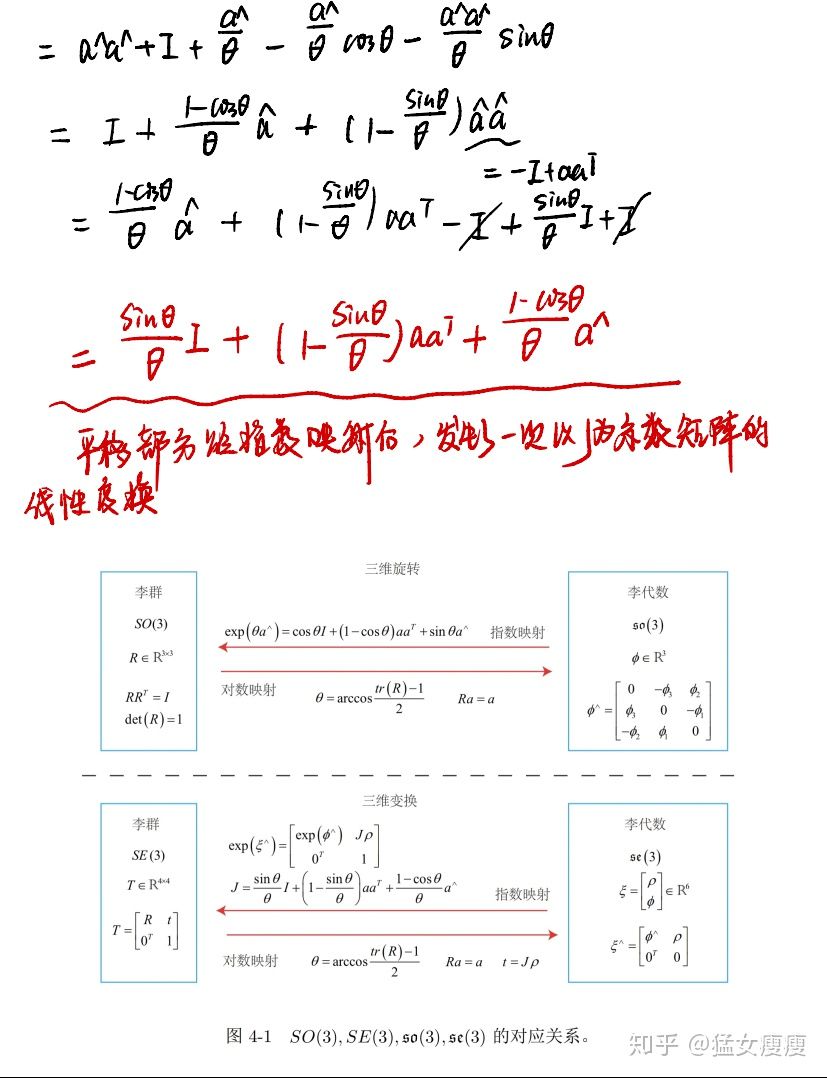 = a^a^ + I + a^/θ - a^/θ cosθ - a^a^/θ sinθ
= I + (1-cosθ)/θ a^ + (1 - sinθ/θ) a^a^
= -I + aaᵀ
= (1-cosθ)/θ a^ + (1 - sinθ/θ) aaᵀ - I + sinθ/θ I + I
= sinθ/θ I + (1 - sinθ/θ) aaᵀ + (1-cosθ)/θ a^
平移部分经指数映射后,发生了一次以J为系数矩阵的
线性变换
三维旋转
李群
SO(3)
R ∈ ℝ³ˣ³
RRᵀ = I
det(R) = 1
exp(θa^) = cosθI + (1-cosθ)aaᵀ + sinθa^ 指数映射
对数映射 θ = arccos (tr(R)-1)/2 Ra = a
李代数
𝔰𝔬(3)
ϕ ∈ ℝ³
ϕ^ = [0 -ϕ₃ ϕ₂; ϕ₃ 0 -ϕ₁; -ϕ₂ ϕ₁ 0]
三维变换
李群
SE(3)
T ∈ ℝ⁴ˣ⁴
T = [R t; 0ᵀ 1]
exp(ξ^) = [exp(ϕ^) Jρ; 0ᵀ 1]
J = sinθ/θ I + (1 - sinθ/θ) aaᵀ + (1-cosθ)/θ a^ 指数映射
对数映射 θ = arccos (tr(R)-1)/2 Ra = a t = Jρ
李代数
𝔰𝔢(3)
ξ = [ρ; ϕ] ∈ ℝ⁶
ξ^ = [ϕ^ ρ; 0ᵀ 0]
图 4-1 SO(3), SE(3), 𝔰𝔬(3), 𝔰𝔢(3) 的对应关系。
知乎 @猛女瘦瘦